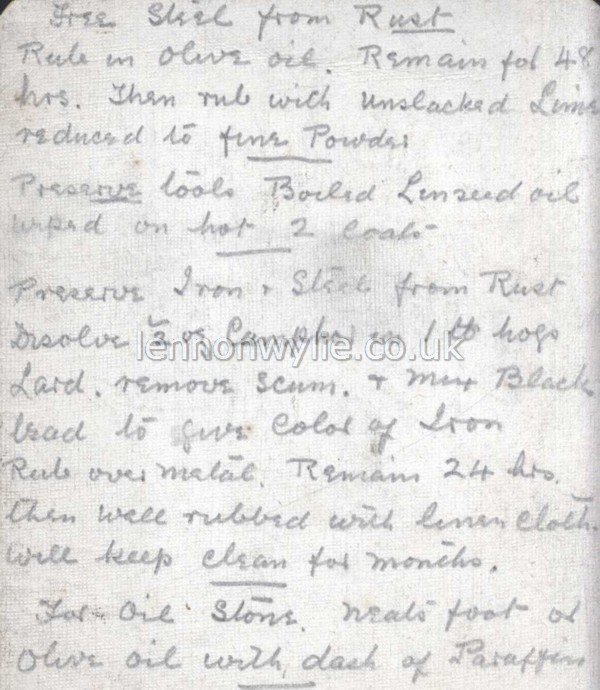 Free Steel from Rust
Rub in Olive oil. Remain for 48
hrs. Then rub with unslacked Lime
reduced to fine Powder
Preserve tools Boiled Linseed oil
wiped on hot 2 Coats
Preserve Iron + Steel from Rust
Disolve oz Camphor in 1 lb hogs
lennonwylie.co.uk
Lard. remove scum. + mix Black
lead to give Color of Iron
Rub over metal. Remain 24 hrs.
then well rubbed with linen cloth.
will keep clean for months.
For Oil Stone. Neats foot or
Olive oil with dash of Paraffin